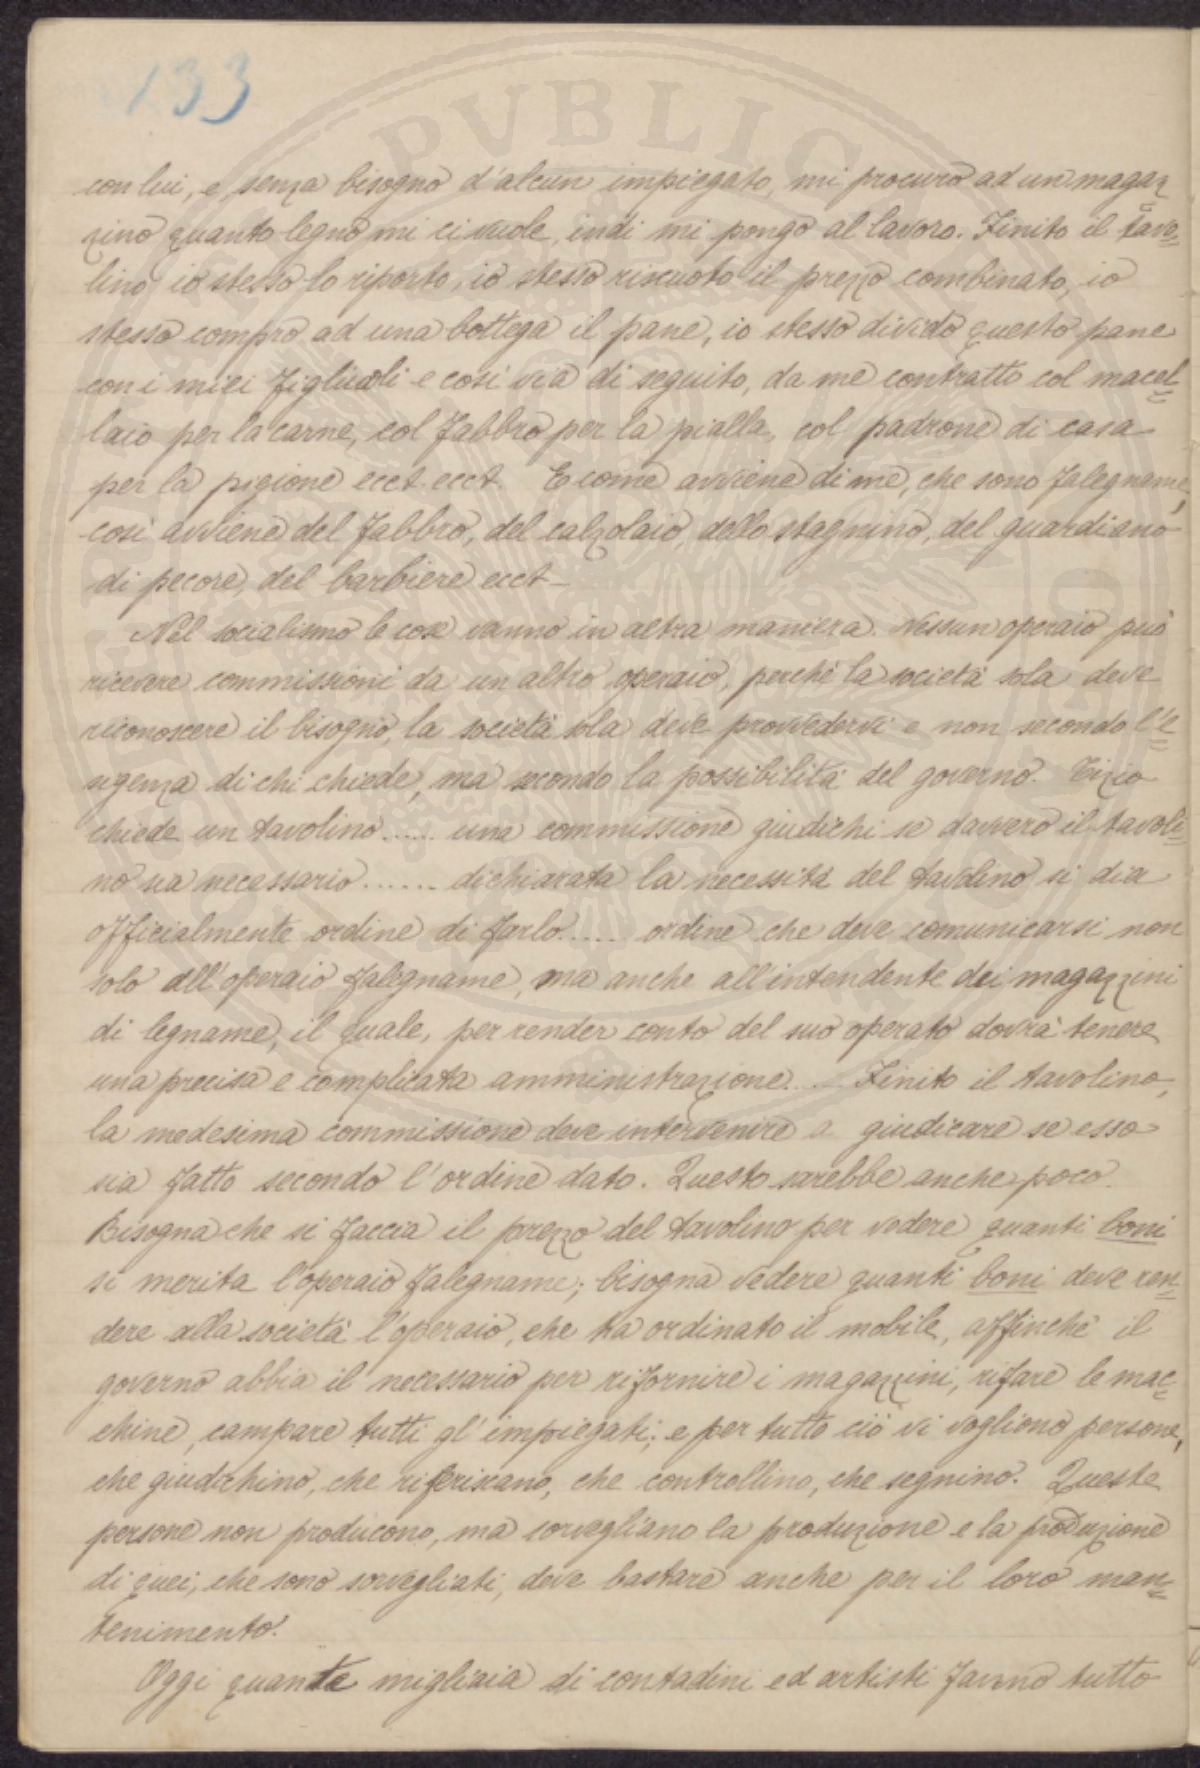 133
con lui, e, senza bisogno d'alcun impiegato, mi procuro ad un magaz=
zino quanto legno mi ci vuole, indi mi pongo al lavoro. Finito il tavo=
lino io stesso lo riporto, io stesso riscuoto il prezzo combinato, io
stesso compro ad una bottega il pane, io stesso divido questo pane
con i miei figliuoli e così via di seguito, da me contratto col macel=
laio per la carne, col fabbro per la pialla, col padrone di casa
per la pigione ecct. ecct. E come avviene di me, che sono falegname,
così avviene del fabbro, del calzolaio, dello stagnino, del guardiano
di pecore, del barbiere ecct—
Nel socialismo le cose vanno in altra maniera. Nessun operaio può
ricevere commissioni da un altro operaio, perchè la società sola deve
riconoscere il bisogno, la società sola deve provvedervi e non secondo l'e=
sigenza di chi chiede, ma secondo la possibilità del governo. Tizio
chiede un tavolino...... una commissione giudichi se davvero il tavoli=
no sia necessario....... dichiarata la necessità del tavolino si dia
officialmente ordine di farlo...... ordine che deve comunicarsi non
solo all'operaio falegname, ma anche all'intendente dei magazzini
di legname, il quale, per render conto del suo operato dovrà tenere
una precisa e complicata amministrazione..... Finito il tavolino,
la medesima commissione deve intervenire a giudicare se esso
sia fatto secondo l'ordine dato. Questo sarebbe anche poco.
Bisogna che si faccia il prezzo del tavolino per vedere quanti boni
si merita l'operaio falegname; bisogna vedere quanti boni deve ren=
dere alla società l'operaio, che ha ordinato il mobile, affinchè il
governo abbia il necessario per rifornire i magazzini, rifare le mac=
chine, campare tutti gl'impiegati; e per tutto ciò vi vogliono persone,
che giudichino, che riferiscano, che controllino, che segnino. Queste
persone non producono, ma sorvegliano la produzione e la produzione
di quei, che sono sorvegliati, deve bastare anche per il loro man=
tenimento.
Oggi quante migliaia di contadini ed artisti fanno tutto